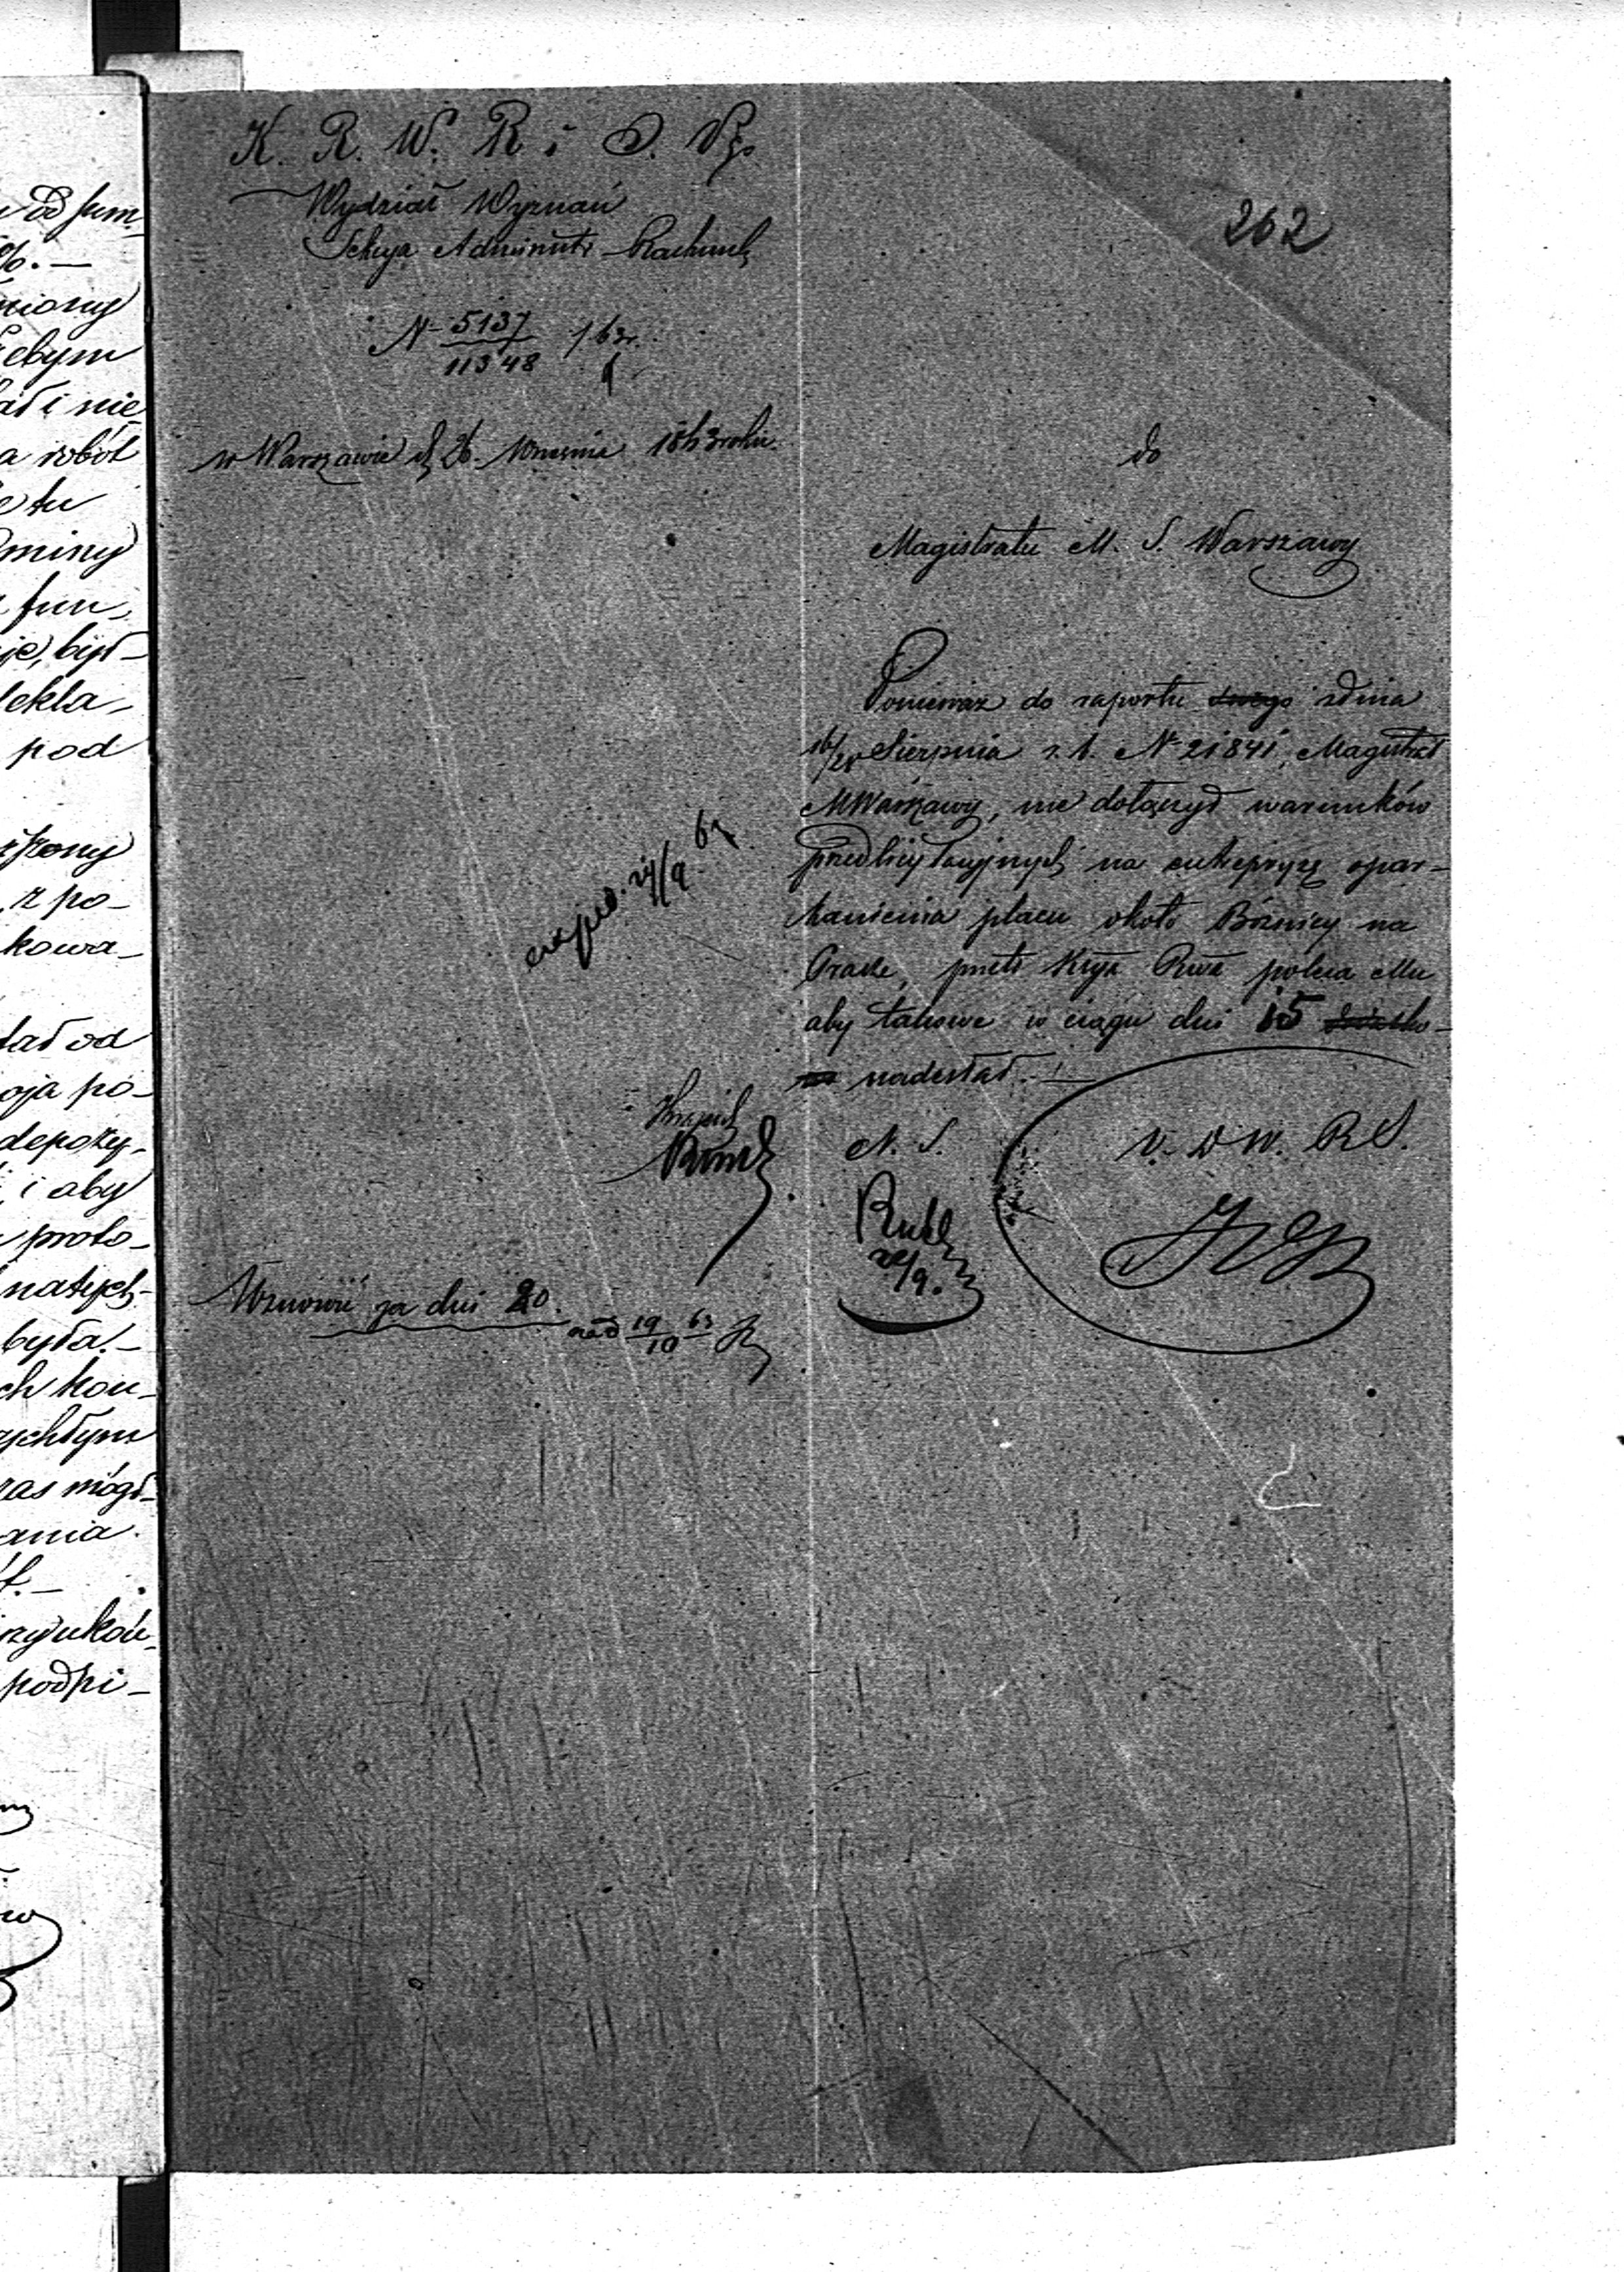 262
K. R. W. R. i O. P.
Wydział Wyznań
Sekcja Administr - Rachunk
N 5137/11348 /63r.
w Warszawie d 26. Września 1863 roku.
do
Magistratu M. S. Warszawy
Ponieważ do raportu swego zdnia
16/28 Sierpnia r. b. N 21841, Magistrat
M Warszawy, nie dołączył warunków
przedlicytacyjnych na entrepryzę opar-
kanienia placu około Bóżnicy na
Pradze, przeto Kssya Rwa poleca Mu
aby takowe w ciągu dni 15
nadesłał.
N. S.
D W. R S.
Wznowić za dni 20.
19/10 63
od sum
%.
niony
żebym
ał i nie
a robót
tu
miny
fun
je, był
dekla
pod
z po-
kowa-
tał od
oja po-
depozy,
i aby
proto-
natych-
była.
ch kon-
rychłym
zas mógł
ania.
podpi-